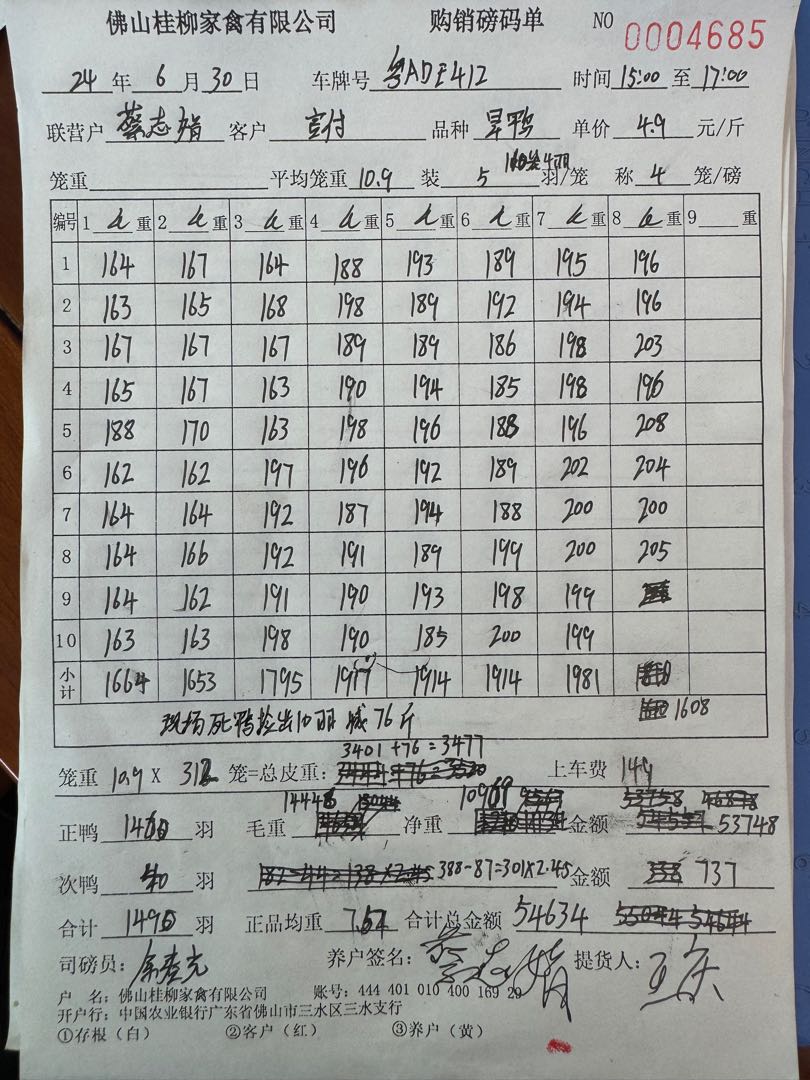 佛山桂柳家禽有限公司 购销磅码单 NO 0004685
24 年 6 月 30 日 车牌号 粤ADE412 时间 15:00 至 17:00
联营户 蔡志娟 客户 客种 旱鸭 单价 4.9 元/斤
笼重 平均笼重 10.9 装 5 羽/笼 称 4 笼/磅
编号 1 重 2 重 3 重 4 重 5 重 6 重 7 重 8 重 9 重
1 164 167 164 188 193 189 195 196
2 163 165 168 198 189 192 194 196
3 167 167 167 189 189 186 198 203
4 165 167 163 190 194 185 198 196
5 188 170 163 198 196 188 196 208
6 162 162 197 196 192 189 202 204
7 164 164 192 187 194 188 200 200
8 164 166 192 191 189 199 200 205
9 164 162 191 190 193 198 199
10 163 163 198 190 185 200 199
小计 1664 1653 1795 1917 1914 1914 1981
1608
现场死鸭捡出10羽 减76斤
3401+76=3477
笼重 10.9 X 312 笼=总皮重: 上车费 149
正鸭 羽 毛重 14446 净重 10969 金额 53748
次鸭 40 羽 388-87=301X2.45 金额 737
合计 羽 正品均重 合计总金额 54634
司磅员: 养户签名: 蔡志娟 提货人:
户 名: 佛山桂柳家禽有限公司 账号: 444 401 010 400 169 29
开户行: 中国农业银行广东省佛山市三水区三水支行
①存根（白） ②客户（红） ③养户（黄）